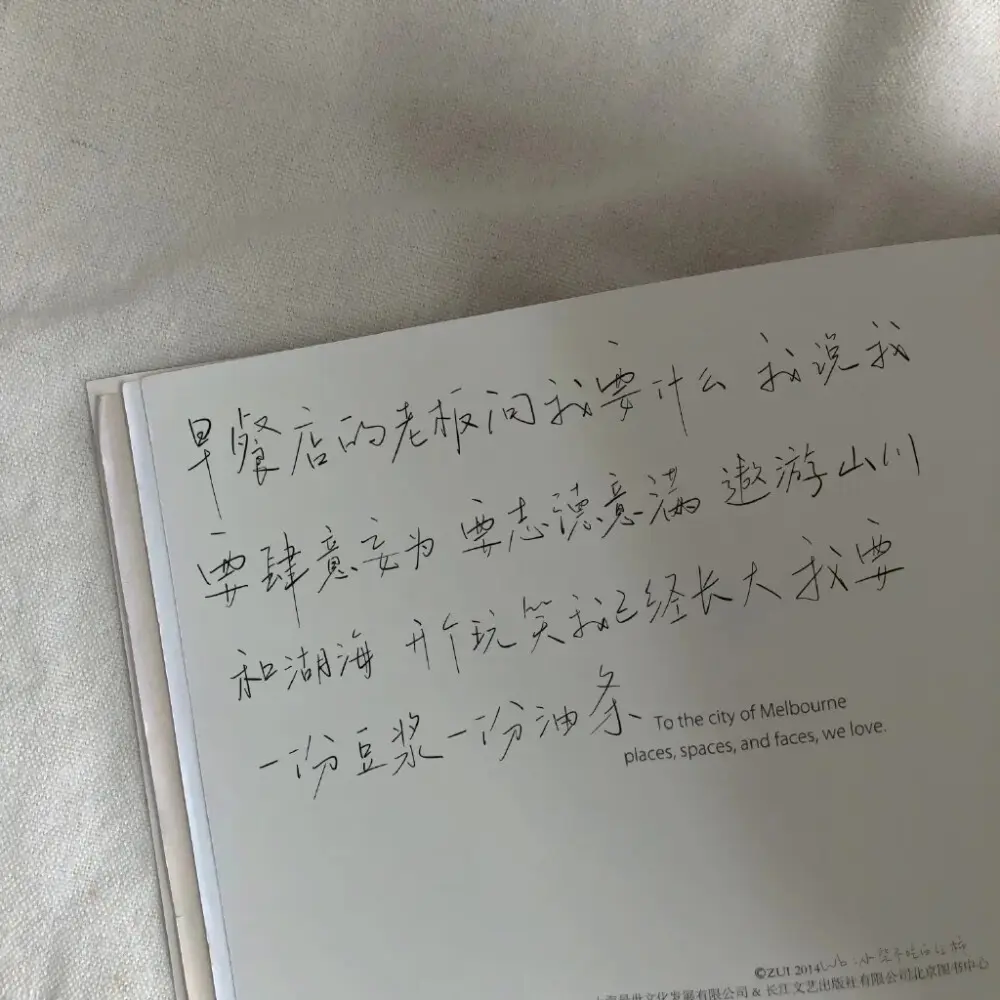 早餐店的老板问我要什么 我说我
要肆意妄为 要志德意满 遨游山川
和湖海 开个玩笑我已经长大 我要
一份豆浆一份油条
To the city of Melbourne
places, spaces, and faces, we love.
©ZUI 2014
文化发展有限公司 & 长江文艺出版社有限公司北京图书中心